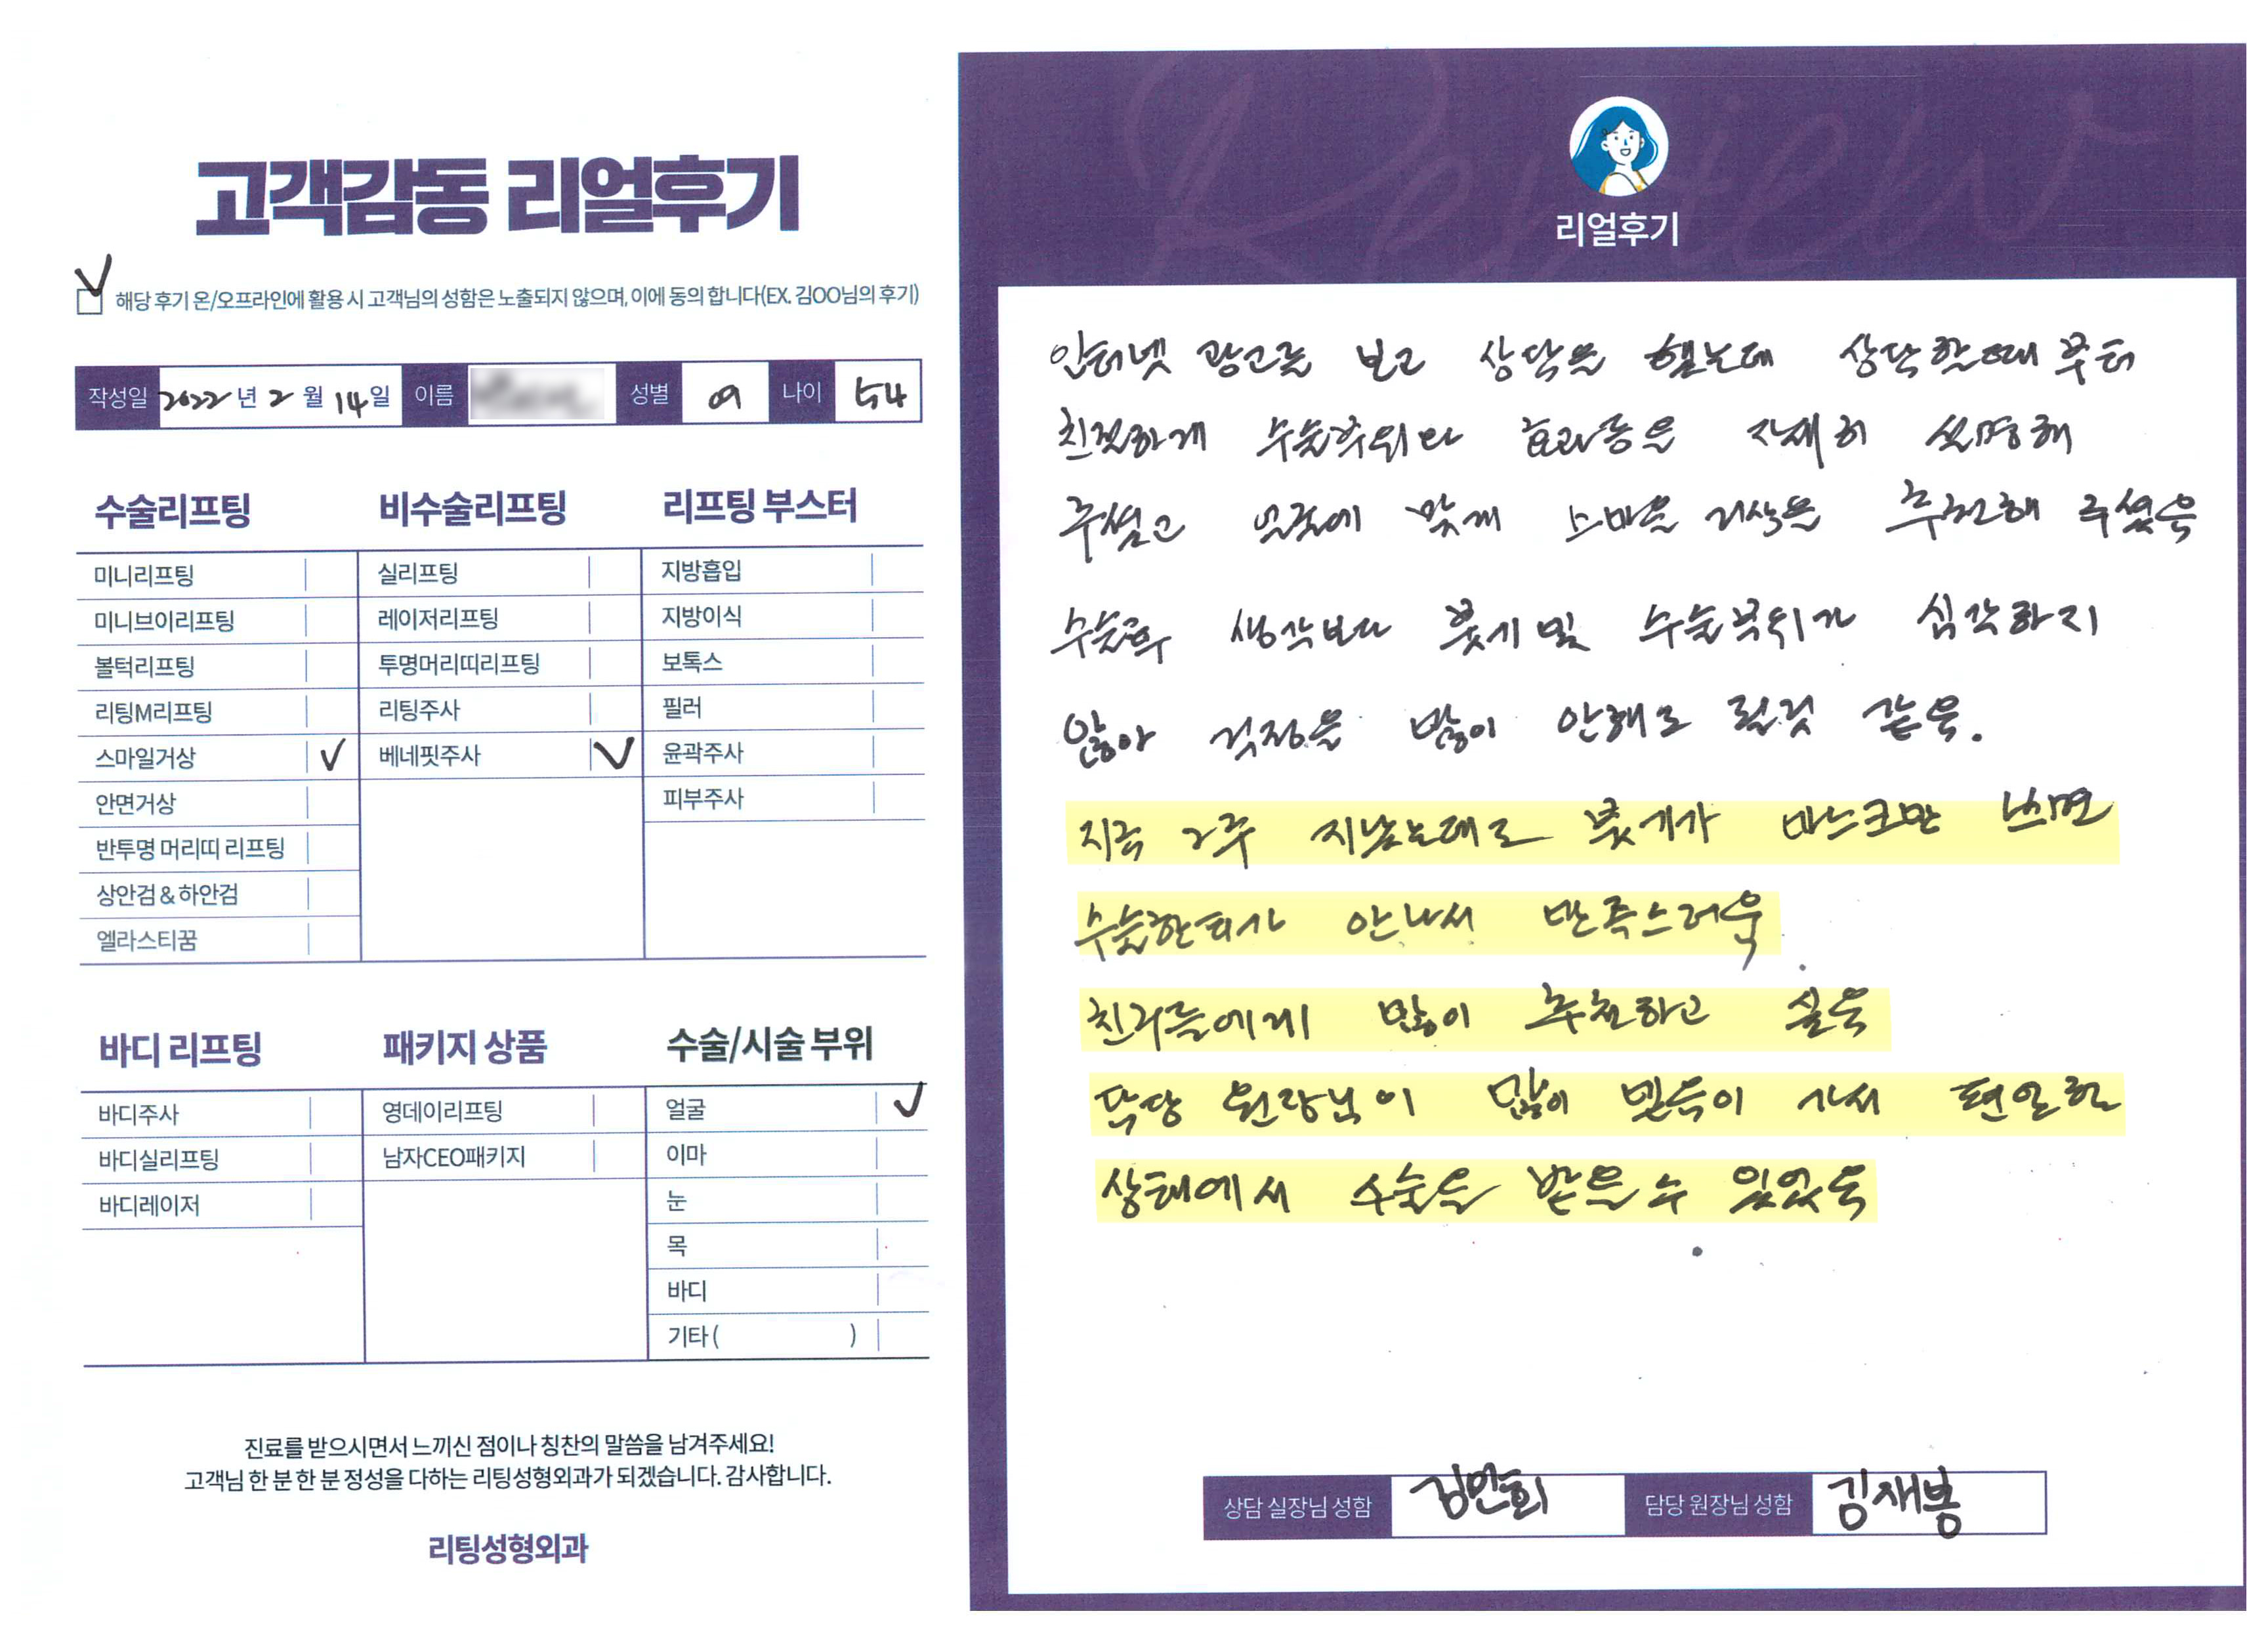 고객감동 리얼후기
해당 후기 온/오프라인에 활용 시 고객님의 성함은 노출되지 않으며, 이에 동의 합니다(EX. 김OO님의 후기)
작성일 2022년 2월 14일 이름 성별 여 나이 54
수술리프팅
미니리프팅
미니브이리프팅
볼턱리프팅
리팅M리프팅
스마일거상 ✓
안면거상
반투명 머리띠 리프팅
상안검 & 하안검
엘라스티꿈
비수술리프팅
실리프팅
레이저리프팅
투명머리띠리프팅
리팅주사
베네핏주사 ✓
리프팅 부스터
지방흡입
지방이식
보톡스
필러
윤곽주사
피부주사
바디 리프팅
바디주사
바디실리프팅
바디레이저
패키지 상품
영데이리프팅
남자CEO패키지
수술/시술 부위
얼굴 ✓
이마
눈
목
바디
기타 ( )
진료를 받으시면서 느끼신 점이나 칭찬의 말씀을 남겨주세요!
고객님 한 분 한 분 정성을 다하는 리팅성형외과가 되겠습니다. 감사합니다.
리팅성형외과
Review
리얼후기
인터넷 광고를 보고 상담을 했는데 상담할때부터
친절하게 수술부위나 효과등을 자세히 설명해
주셨고 얼굴에 맞게 스마일 거상을 추천해 주셨음
수술후 생각보다 붓기 및 수술부위가 심각하지
않아 걱정을 많이 안해도 될것 같음.
지금 2주 지났는데도 붓기가 마스크만 쓰면
수술한티가 안나서 만족스러움.
친구들에게 많이 추천하고 싶음
담당 원장님이 많이 믿음이 가서 편안한
상태에서 수술을 받을 수 있었음.
상담 실장님 성함 김민희 담당 원장님 성함 김재봉